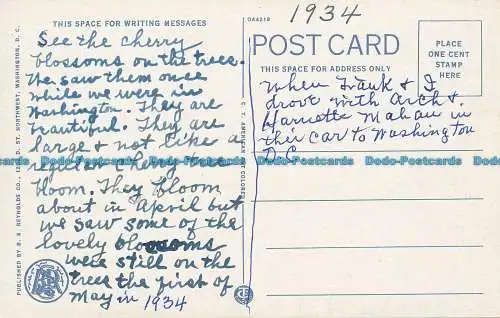 THIS SPACE FOR WRITING MESSAGES
See the cherry
blossoms on the tree.
We saw them once
while we were in
Washington. They are
beautiful. They are
large & not like a
regular cherry tree
bloom. They bloom
about in April but
we saw some of the
lovely blossoms
were still on the
tree the first of
May in 1934
PUBLISHED BY B. S. REYNOLDS CO., D. ST. NORTHWEST, WASHINGTON, D. C.
C. T. AMERICAN ART COLORED
1934
OA4219
POST CARD
THIS SPACE FOR ADDRESS ONLY
PLACE
ONE CENT
STAMP
HERE
When Frank & I
drove with Arch &
Harriette Mahan in
their car to Washington
D.C.
Dodo-Postcards Dodo-Postcards Dodo-Postcards Dodo-Postcards